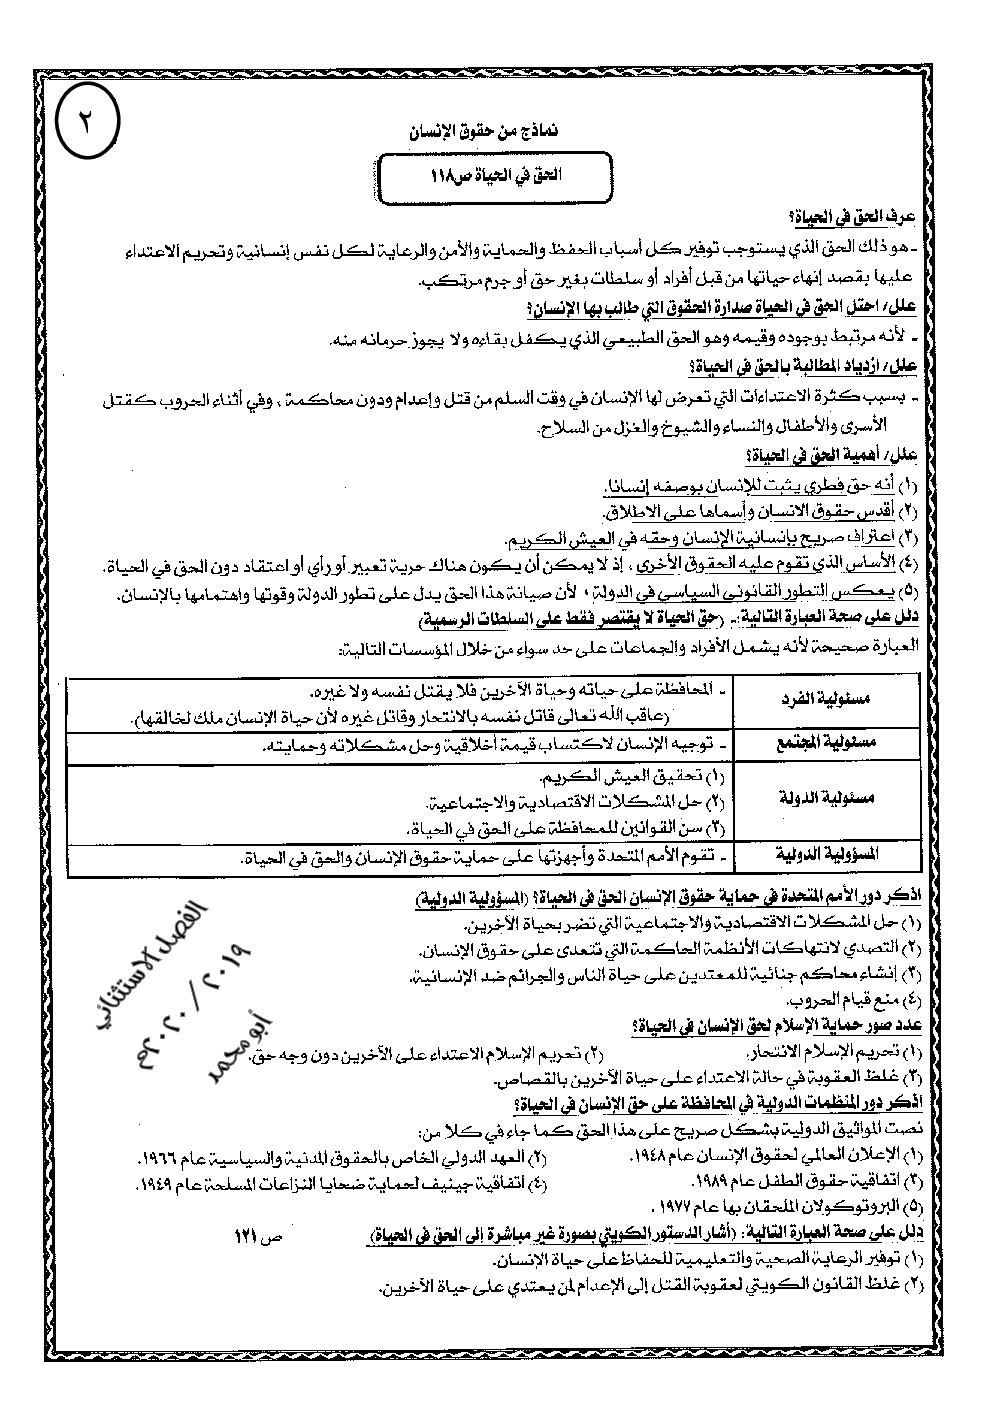 ٢
نماذج من حقوق الإنسان
الحق في الحياة ص١١٨
عرف الحق في الحياة؟
- هو ذلك الحق الذي يستوجب توفير كل أسباب الحفظ والحماية والأمن والرعاية لكل نفس إنسانية وتحريم الاعتداء
عليها بقصد إنهاء حياتها من قبل أفراد أو سلطات بغير حق أو جرم مرتكب.
علل/ احتل الحق في الحياة صدارة الحقوق التي طالب بها الإنسان؟
- لأنه مرتبط بوجوده وقيمه وهو الحق الطبيعي الذي يكفل بقاءه ولا يجوز حرمانه منه.
علل/ ازدياد المطالبة بالحق في الحياة؟
- بسبب كثرة الاعتداءات التي تعرض لها الإنسان في وقت السلم من قتل وإعدام ودون محاكمة، وفي أثناء الحروب كقتل
الأسرى والأطفال والنساء والشيوخ والعزل من السلاح.
علل/ أهمية الحق في الحياة؟
(١) أنه حق فطري يثبت للإنسان بوصفه إنسانا.
(٢) أقدس حقوق الانسان وأسماها على الاطلاق.
(٣) اعتراف صريح بإنسانية الإنسان وحقه في العيش الكريم.
(٤) الأساس الذي تقوم عليه الحقوق الأخرى، إذ لا يمكن أن يكون هناك حرية تعبير أو رأي أو اعتقاد دون الحق في الحياة.
(٥) يعكس التطور القانوني السياسي في الدولة، لأن صيانة هذا الحق يدل على تطور الدولة وقوتها واهتمامها بالإنسان.
دلل على صحة العبارة التالية:- (حق الحياة لا يقتصر فقط على السلطات الرسمية)
العبارة صحيحة لأنه يشمل الأفراد والجماعات على حد سواء من خلال المؤسسات التالية:
مسئولية الفرد
- المحافظة على حياته وحياة الآخرين فلا يقتل نفسه ولا غيره.
(عاقب الله تعالى قاتل نفسه بالانتحار وقاتل غيره لأن حياة الإنسان ملك لخالقها).
مسئولية المجتمع
- توجيه الإنسان لاكتساب قيمة أخلاقية وحل مشكلاته وحمايته.
مسئولية الدولة
(١) تحقيق العيش الكريم.
(٢) حل المشكلات الاقتصادية والاجتماعية.
(٣) سن القوانين للمحافظة على الحق في الحياة.
المسؤولية الدولية
- تقوم الأمم المتحدة وأجهزتها على حماية حقوق الإنسان والحق في الحياة.
اذكر دور الأمم المتحدة في حماية حقوق الإنسان الحق في الحياة؟ (المسؤولية الدولية)
(١) حل المشكلات الاقتصادية والاجتماعية التي تضر بحياة الآخرين.
(٢) التصدي لانتهاكات الأنظمة الحاكمة التي تتعدى على حقوق الإنسان.
(٣) إنشاء محاكم جنائية للمعتدين على حياة الناس والجرائم ضد الإنسانية.
(٤) منع قيام الحروب.
الفصل الاستثنائي
٢٠١٩ / ٢٠٢٠م
أبو محمد
عدد صور حماية الإسلام لحق الإنسان في الحياة؟
(١) تحريم الإسلام الانتحار. (٢) تحريم الإسلام الاعتداء على الآخرين دون وجه حق.
(٣) غلظ العقوبة في حالة الاعتداء على حياة الآخرين بالقصاص.
اذكر دور المنظمات الدولية في المحافظة على حق الإنسان في الحياة؟
نصت المواثيق الدولية بشكل صريح على هذا الحق كما جاء في كلا من:
(١) الإعلان العالمي لحقوق الإنسان عام ١٩٤٨. (٢) العهد الدولي الخاص بالحقوق المدنية والسياسية عام ١٩٦٦.
(٣) اتفاقية حقوق الطفل عام ١٩٨٩. (٤) اتفاقية جينيف لحماية ضحايا النزاعات المسلحة عام ١٩٤٩
(٥) البروتوكولان الملحقان بها عام ١٩٧٧.
دلل على صحة العبارة التالية: (أشار الدستور الكويتي بصورة غير مباشرة إلى الحق في الحياة) ص ١٢١
(١) توفير الرعاية الصحية والتعليمية للحفاظ على حياة الإنسان.
(٢) غلظ القانون الكويتي لعقوبة القتل إلى الإعدام لمن يعتدي على حياة الآخرين.